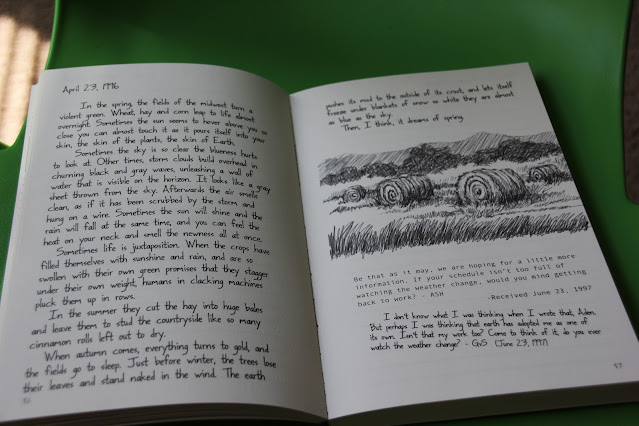 April 23, 1996
In the spring, the fields of the midwest turn a
violent green. Wheat, hay and corn leap to life almost
overnight. Sometimes the sun seems to hover above you so
close you can almost touch it as it pours itself into your
skin, the skin of the plants, the skin of Earth.
Sometimes the sky is so clear the blueness hurts
to look at. Other times, storm clouds build overhead in
churning black and gray waves, unleashing a wall of
water that is visible on the horizon. It looks like a gray
sheet thrown from the sky. Afterwards the air smells
clean, as if it has been scrubbed by the storm and
hung on a wire. Sometimes the sun will shine and the
rain will fall at the same time, and you can feel the
heat on your neck and smell the newness all at once.
Sometimes life is juxtaposition. When the crops have
filled themselves with sunshine and rain, and are so
swollen with their own green promises that they stagger
under their own weight, humans in clacking machines
pluck them up in rows.
In the summer they cut the hay into huge bales
and leave them to stud the countryside like so many
cinnamon rolls left out to dry.
When autumn comes, everything turns to gold, and
the fields go to sleep. Just before winter, the trees lose
their leaves and stand naked in the wind. The earth
pushes its mud to the outside of its crust, and lets itself
freeze under blankets of snow so white they are almost
as blue as the sky.
Then, I think, it dreams of spring.
Be that as it may, we are hoping for a little more
information. If your schedule isn't too full of
watching the weather change, would you mind getting
back to work? - ASH
-Received June 23, 1997
I don't know what I was thinking when I wrote that, Aden.
But perhaps I was thinking that earth has adopted me as one of
its own. Isn't that my work too? Come to think of it, do you ever
watch the weather change? - GvS (June 23, 1997)
57